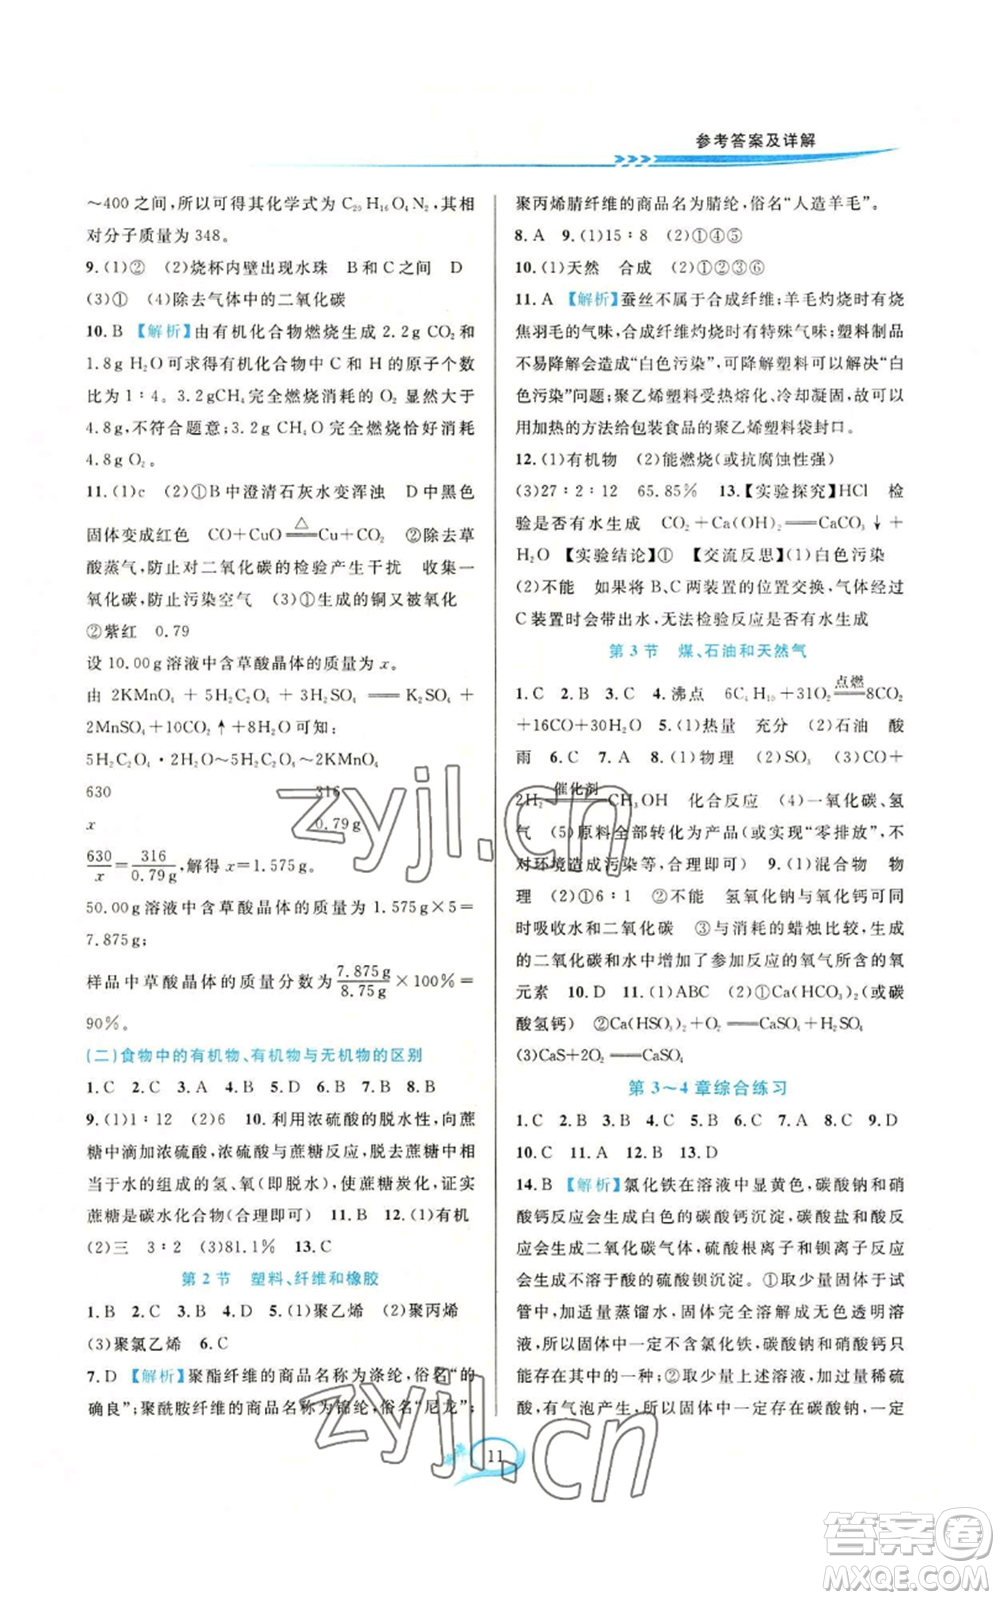 参考答案及详解
～400 之间，所以可得其化学式为 C₂₀H₁₆O₄N₂，其相
对分子质量为 348。
9. (1)②　(2)烧杯内壁出现水珠　B 和 C 之间　D
(3)①　(4)除去气体中的二氧化碳
10. B 【解析】由有机化合物燃烧生成 2.2g CO₂ 和
1.8g H₂O 可求得有机化合物中 C 和 H 的原子个数
比为 1∶4。3.2gCH₄ 完全燃烧消耗的 O₂ 显然大于
4.8g，不符合题意；3.2g CH₄O 完全燃烧恰好消耗
4.8g O₂。
11. (1)c　(2)①B 中澄清石灰水变浑浊　D 中黑色
固体变成红色　CO＋CuO══△══Cu＋CO₂　②除去草
酸蒸气，防止对二氧化碳的检验产生干扰　收集一
氧化碳，防止污染空气　(3)①生成的铜又被氧化
②紫红　0.79
设 10.00g 溶液中含草酸晶体的质量为 x。
由 2KMnO₄ ～～～～ ══ K₂SO₄＋
2MnSO₄＋10CO₂↑＋8H₂O 可知：
5H₂C₂O₄·2H₂O～5H₂C₂O₄～2KMnO₄
630　316
x　0.79g
630/x＝316/0.79g，解得 x＝1.575g
50.00g 溶液中含草酸晶体的质量为 1.575g×5＝
7.875g；
样品中草酸晶体的质量分数为 7.875g/8.75g×100%＝
90%。
(二)食物中的有机物、有机物与无机物的区别
1. C　2. D　3. C　4. D　5. C　6. B　7. B　8. B
9. (1)1∶12　(2)6　10. 利用浓硫酸的脱水性，向蔗
糖中滴加浓硫酸，浓硫酸与蔗糖反应，将蔗糖中相
当于水的组成的氢、氧(即脱水)，使蔗糖炭化，证实
蔗糖是碳水化合物(合理即可)　11. B　12. (1)有机
(2)三　3∶2　(3)81.1%　13. C
第 2 节　塑料、纤维和橡胶
1. B　2. D　3. A　4. D　5. (1)聚乙烯　(2)聚丙烯
(3)聚氯乙烯　6. C
7. D 【解析】聚酯纤维的商品名称为涤纶，俗名“的
确良”；聚酰胺纤维的商品名称为锦纶，俗名“尼龙”；
聚丙烯腈纤维的商品名为腈纶，俗名“人造羊毛”。
8. A　9. (1)15∶8　(2)①④⑤
10. (1)天然　合成　(2)②③⑤⑥
11. A 【解析】蚕丝不属于合成纤维；羊毛灼烧时有烧
焦羽毛的气味，合成纤维灼烧时有特殊气味；塑料制品
不易降解会造成“白色污染”，可降解塑料可以解决“白
色污染”问题；聚乙烯塑料受热熔化、冷却凝固，可以
用加热的方法给包装食品的聚乙烯塑料袋封口。
12. (1)有机物　(2)能燃烧(或抗腐蚀性强)
(3)27∶2∶12　65.85%　13.【实验探究】HCl　检
验是否有水生成　CO₂＋Ca(OH)₂══CaCO₃↓＋
H₂O 【实验结论】①　【交流反思】(1)白色污染
(2)不能　如果将 B、C 两装置的位置交换，气体经过
C 装置时会带出水，无法检验反应是否有水生成
第 3 节　煤、石油和天然气
1. C　2. B　3. C　4. 沸点　6C₄H₁₀＋31O₂══点燃══8CO₂
＋16CO＋30H₂O　5. (1)热量　充分　(2)石油　酸
雨　6. C　7. A　8. (1)物理　(2)SO₃　(3)CO＋
2H₂══催化剂══CH₃OH　化合反应　(4)一氧化碳、氢
气　(5)原料全部转化为产品(或实现“零排放”，不
对环境造成污染等，合理即可)　9. (1)混合物　物
理　(2)①6∶1　②不能　氢氧化钠与氧化钙可同
时吸收水和二氧化碳　③与消耗的蜡烛比较，生成
的二氧化碳和水中增加了参加反应的氧气所含的氧
元素　10. D　11. (1)ABC　(2)①Ca(HCO₃)₂(或碳
酸氢钙)　②Ca(HSO₃)₂＋O₂══CaSO₄＋H₂SO₄
(3)CaS＋2O₂══CaSO₄
第 3～4 章综合练习
1. C　2. C　3. C　4. D　5. C　6. D　7. C　8. C　9. D
10. C　11. A　12. B　13. D
14. B 【解析】氯化铁在溶液中显黄色，碳酸钠和硝
酸钙反应会生成白色的碳酸钙沉淀，碳酸盐和酸反
应会生成二氧化碳气体，硫酸根离子和钡离子反应
会生成不溶于酸的硫酸钡沉淀。①取少量固体于试
管中，加适量蒸馏水，固体完全溶解成无色透明溶
液，所以固体中一定不含氯化铁，碳酸钠和硝酸钙只
能含有其中的一种；②取少量上述溶液，加过量稀硫
酸，有气泡产生，所以固体中一定存在碳酸钠，一定
11
zyjl.cn
zyjl.cn
答案圈
MXQE.COM